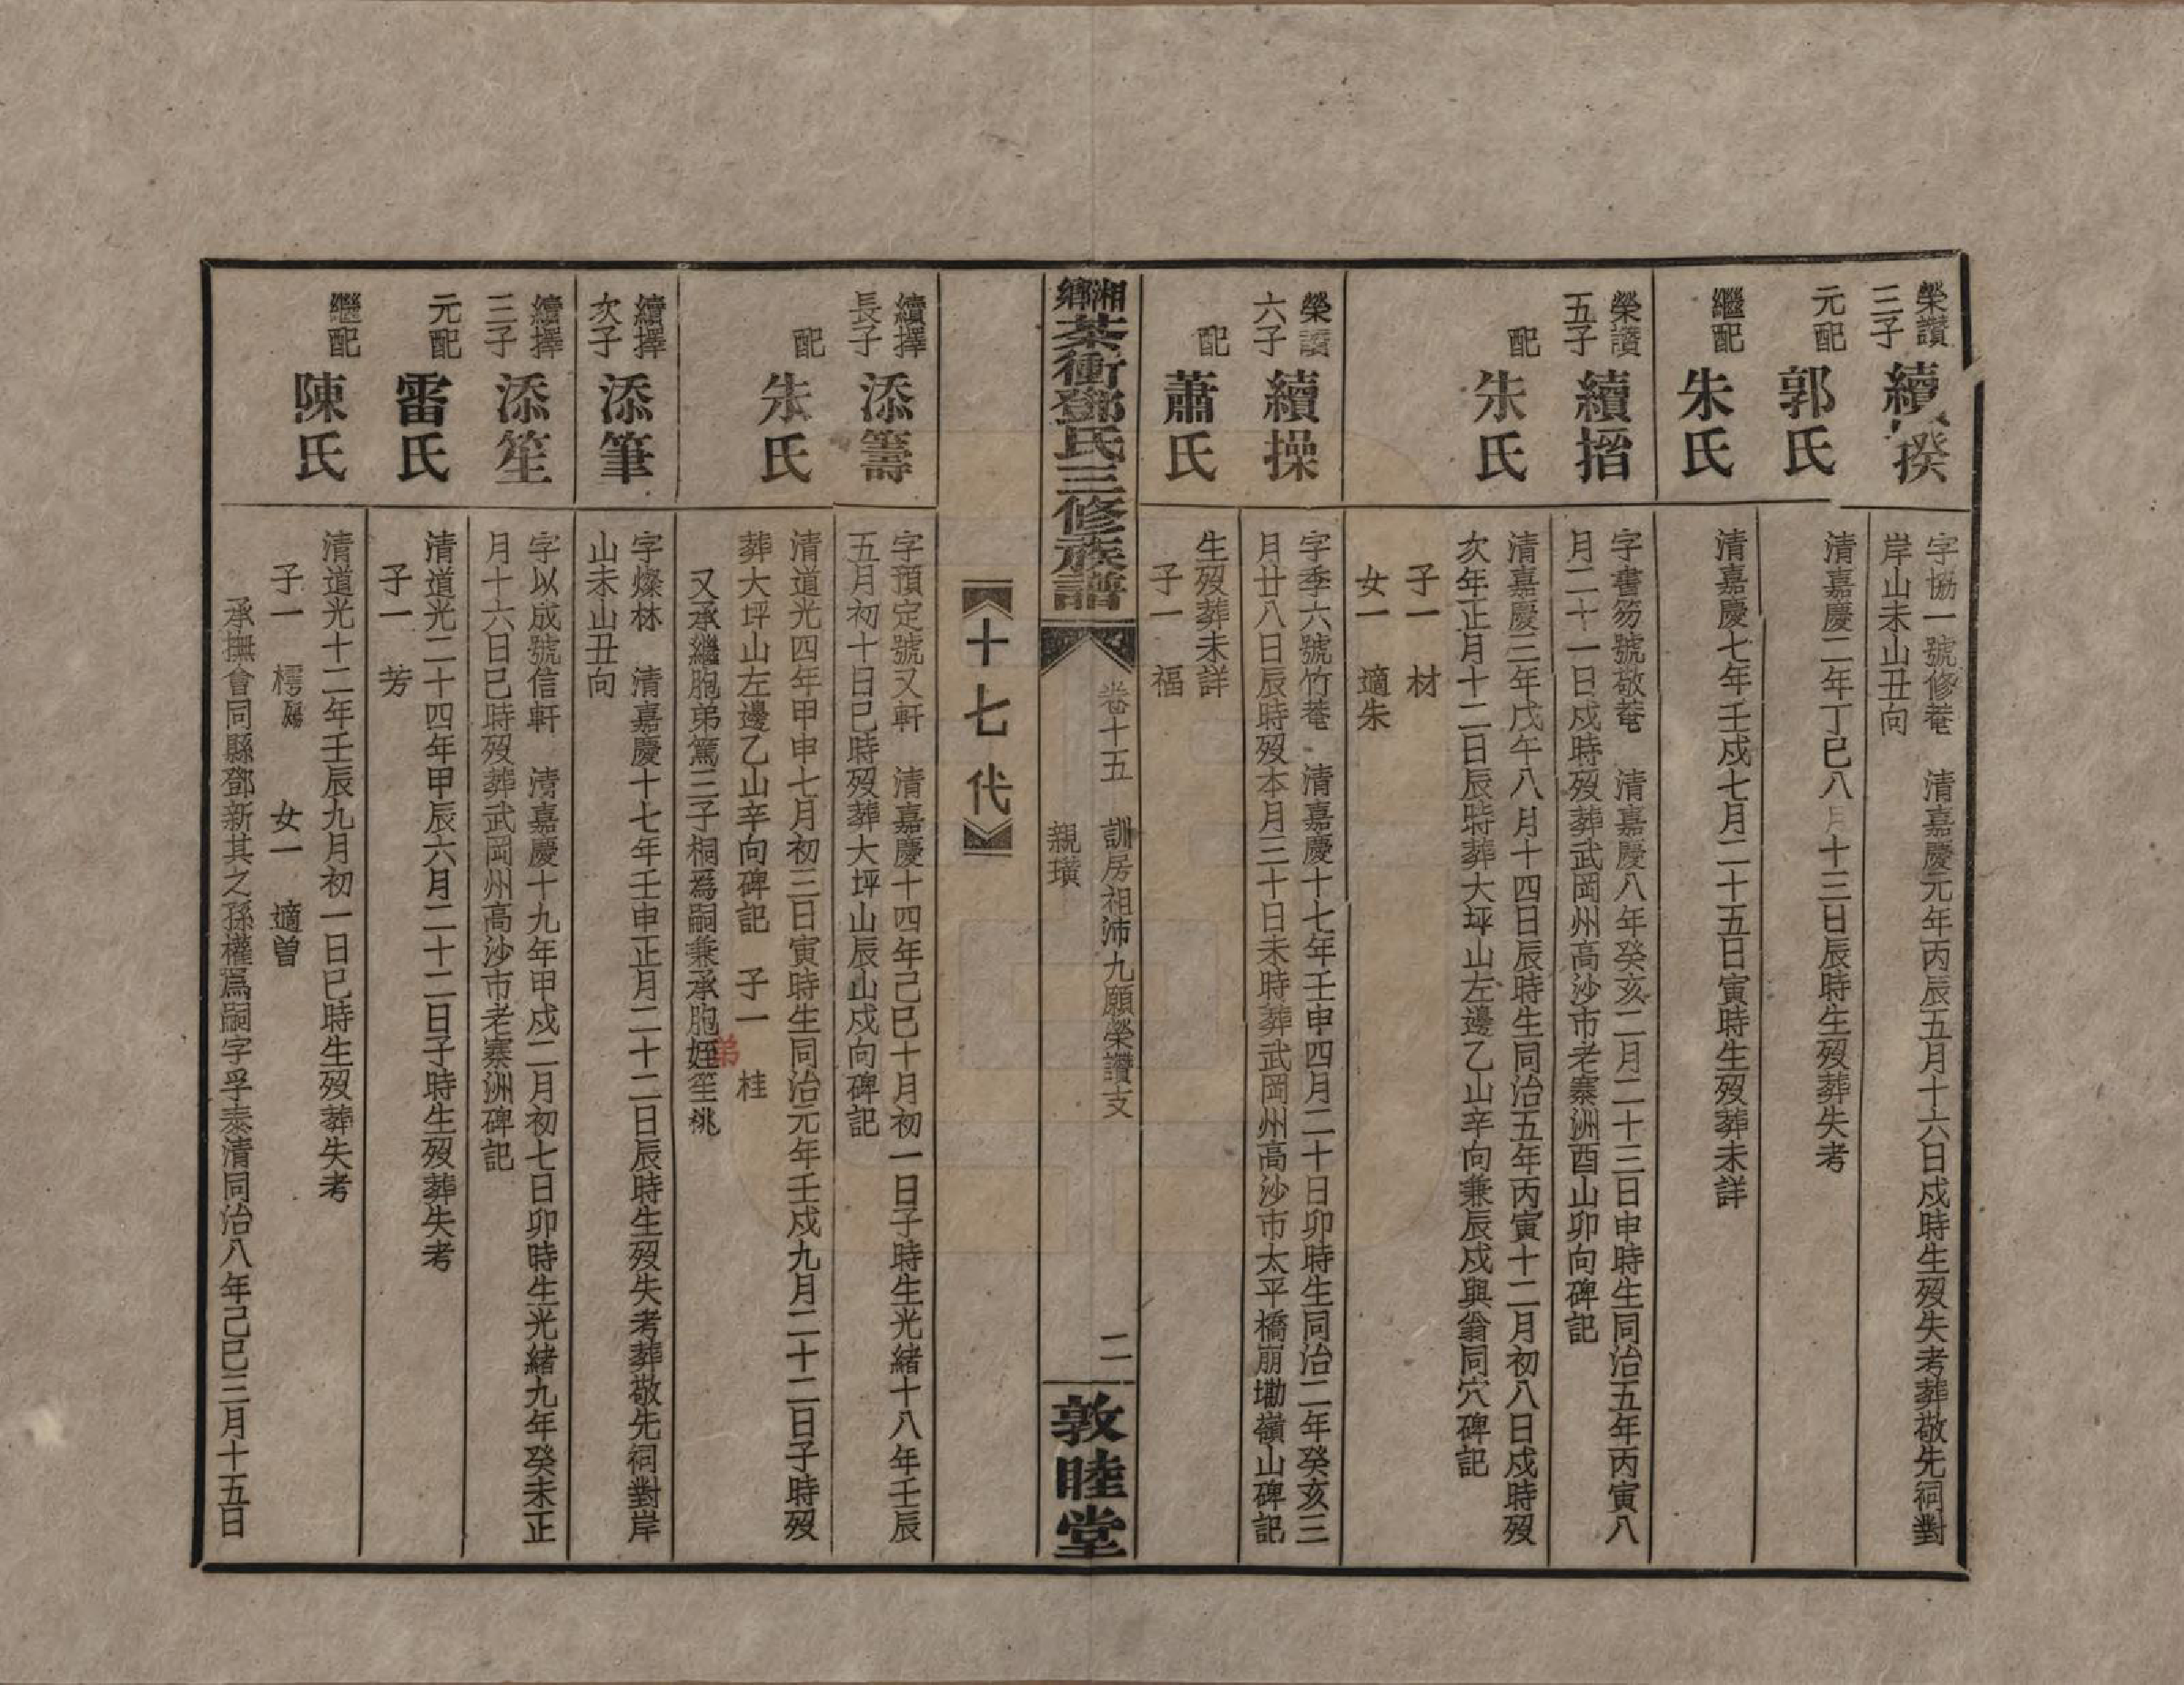 榮讃
三子
續揆
字協一號修菴　清嘉慶元年丙辰五月十六日戍時生歿失考葬敬先祠對
岸山未山丑向
元配
郭氏
清嘉慶二年丁巳八月十三日辰時生歿葬失考
繼配
朱氏
清嘉慶七年壬戍七月二十五日寅時生歿葬未詳
榮讃
五子
續搢
字書笏號敬菴　清嘉慶八年癸亥二月二十三日申時生同治五年丙寅八
月二十一日戍時歿葬武岡州高沙市老寨洲酉山卯向碑記
配
朱氏
清嘉慶三年戊午八月十四日辰時生同治五年丙寅十二月初八日戍時歿
次年正月十二日辰時葬大坪山左邊乙山辛向兼辰戍與翁同穴碑記
子一　材
女一　適朱
榮讃
六子
續操
字季六號竹菴　清嘉慶十七年壬申四月二十日卯時生同治二年癸亥三
月廿八日辰時歿本月三十日未時葬武岡州高沙市太平橋崩墈嶺山碑記
配
蕭氏
生歿葬未詳
子一　福
湘鄉茶衝鄧氏三修族譜
卷十五　訓房祖沛九願榮讚支
親璜
二
敦睦堂
十七代
續擇
長子
添籌
字預定號又軒　清嘉慶十四年己巳十月初一日子時生光緒十八年壬辰
五月初十日巳時歿葬大坪山辰山戍向碑記
配
朱氏
清道光四年甲申七月初三日寅時生同治元年壬戍九月二十二日子時歿
葬大坪山左邊乙山辛向碑記　子一　桂
又承繼胞弟篤三子桐爲嗣兼承胞姪笙祧
弟
續擇
次子
添筆
字燦林　清嘉慶十七年壬申正月二十二日辰時生歿失考葬敬先祠對岸
山未山丑向
續擇
三子
添笙
字以成號信軒　清嘉慶十九年甲戍二月初七日卯時生光緒九年癸未正
月十六日巳時歿葬武岡州高沙市老寨洲碑記
元配
雷氏
清道光二十四年甲辰六月二十二日子時生歿葬失考
子一　芳
繼配
陳氏
清道光十二年壬辰九月初一日巳時生歿葬失考
子一　樗殤　女一　適曾
承撫會同縣鄧新其之孫權爲嗣字孚泰清同治八年己巳三月十五日